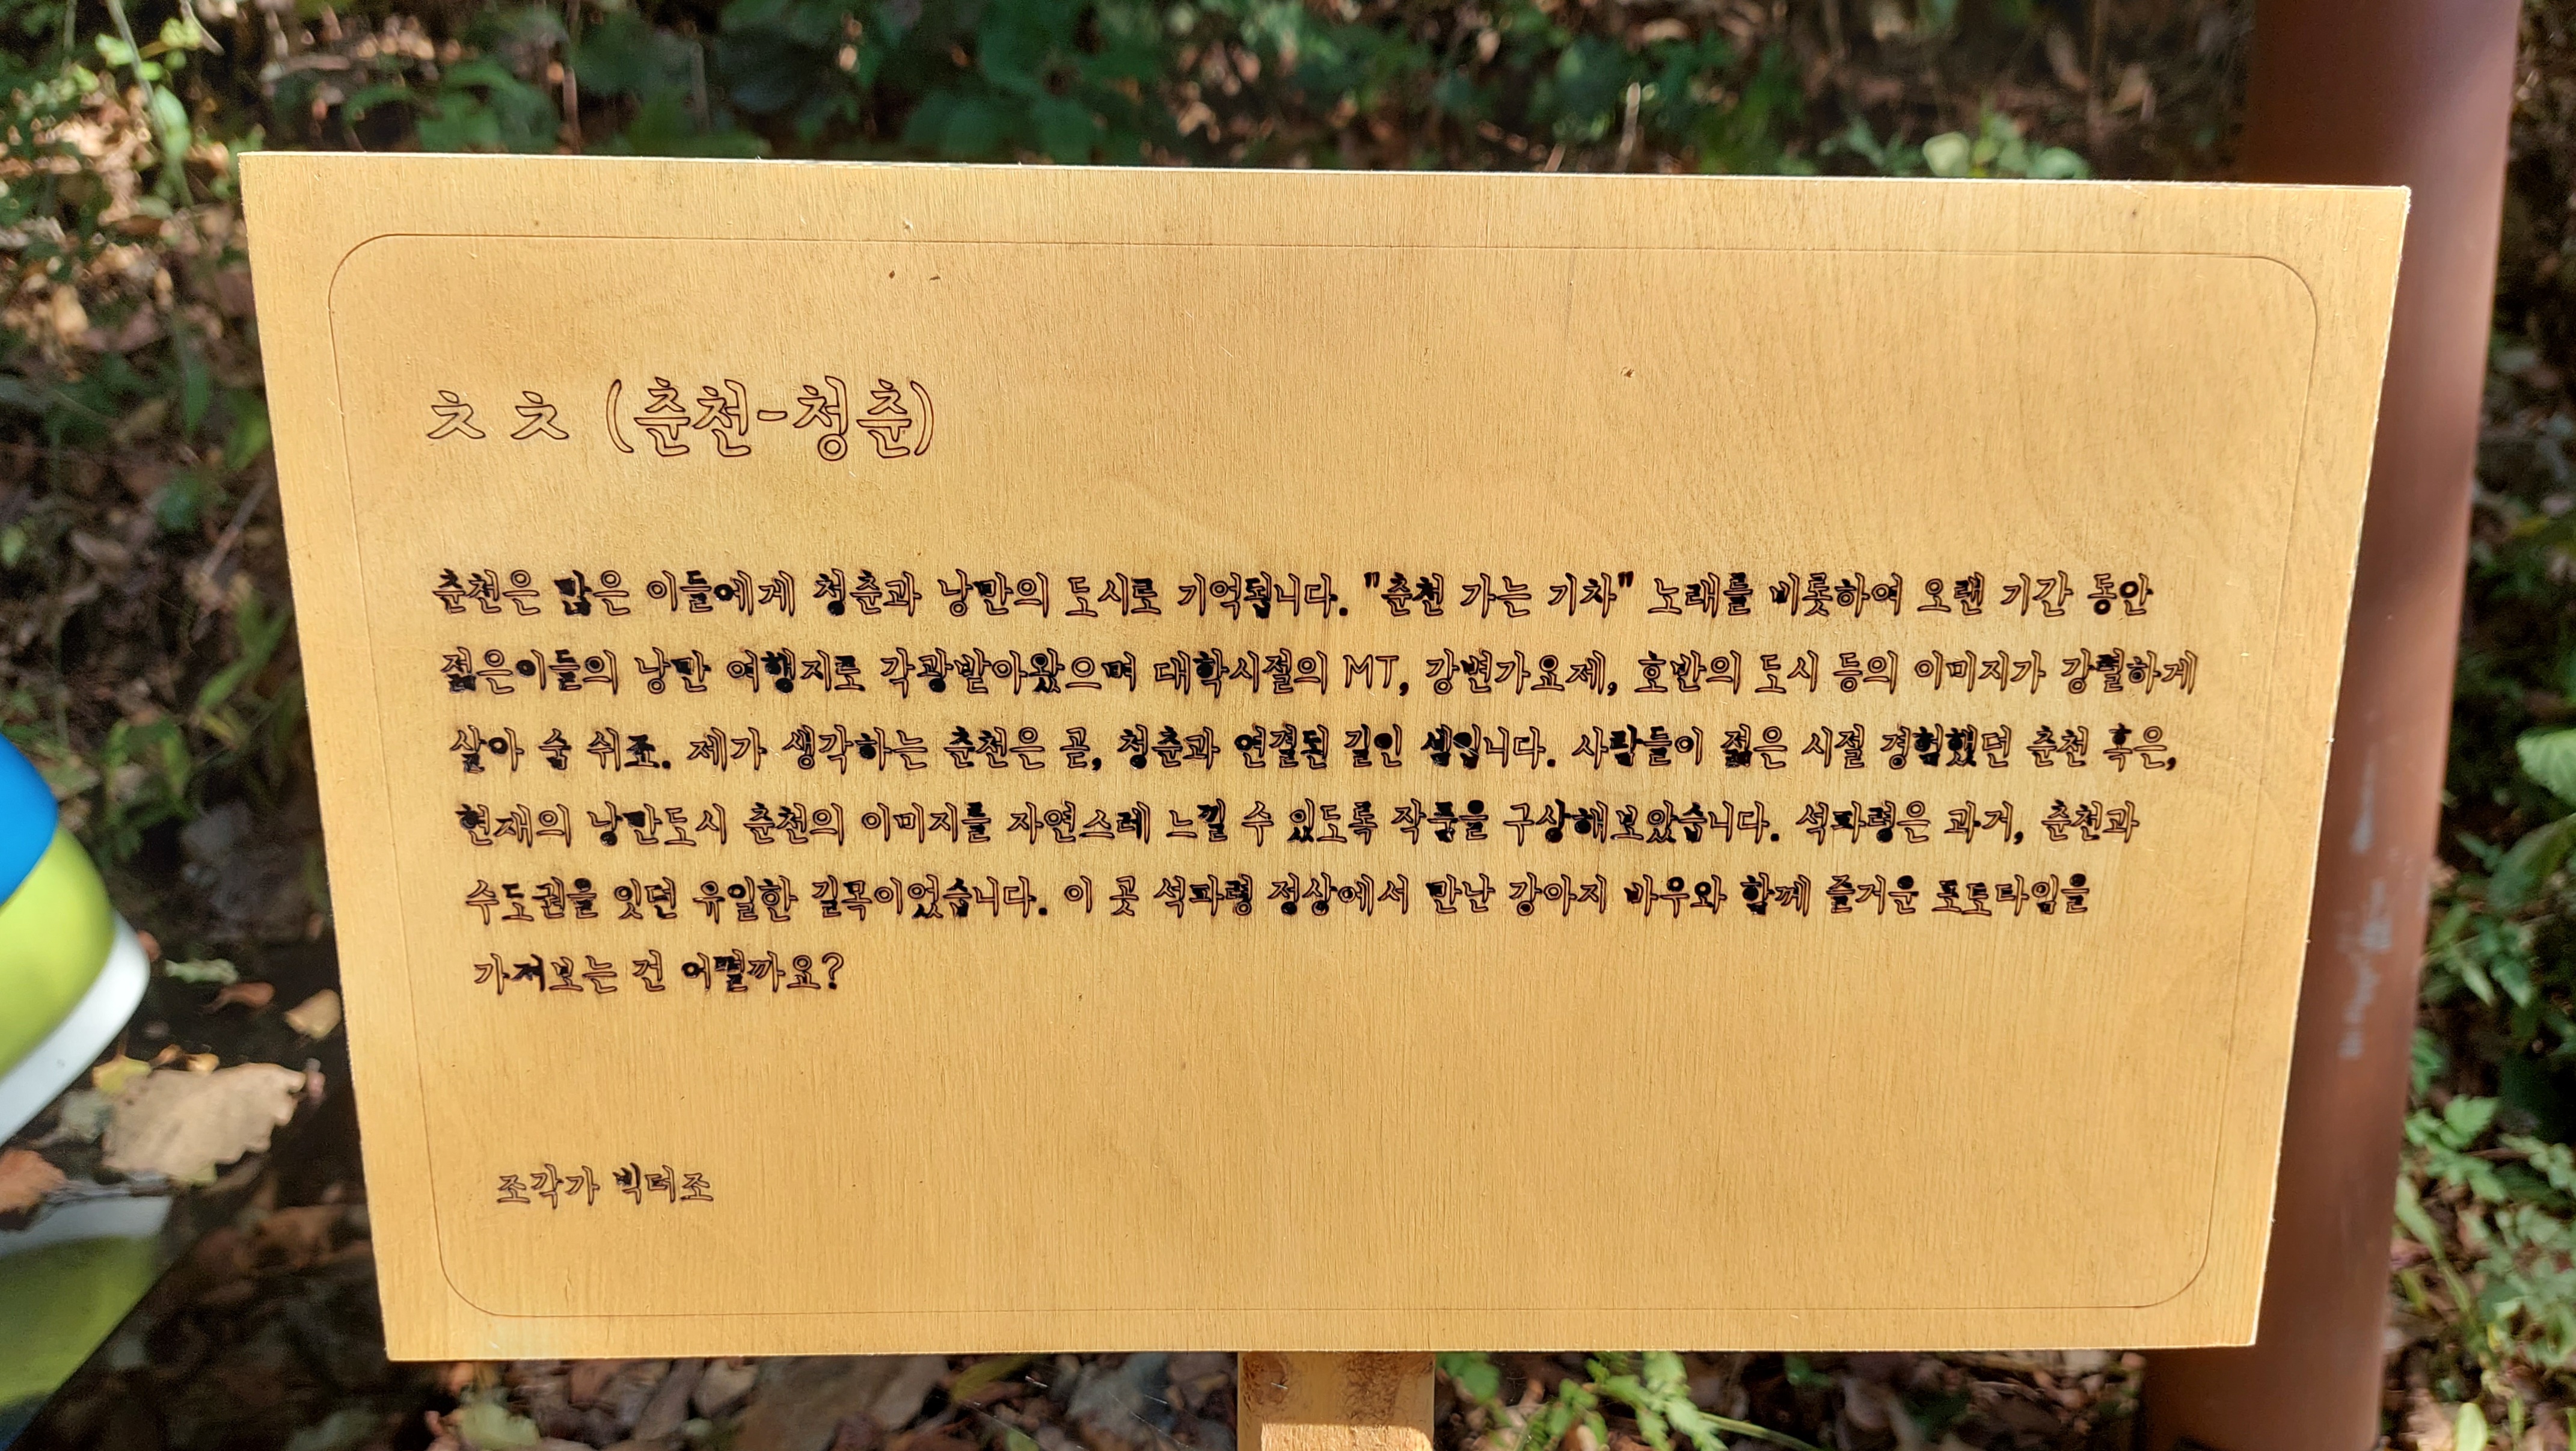 ㅊ ㅊ (춘천-청춘)
춘천은 많은 이들에게 청춘과 낭만의 도시로 기억됩니다. "춘천 가는 기차" 노래를 비롯하여 오랜 기간 동안
젊은이들의 낭만 여행지로 각광받아왔으며 대학시절의 MT, 강변가요제, 호반의 도시 등의 이미지가 강렬하게
살아 숨 쉬죠. 제가 생각하는 춘천은 곧, 청춘과 연결된 길인 셈입니다. 사람들이 젊은 시절 경험했던 춘천 혹은,
현재의 낭만도시 춘천의 이미지를 자연스레 느낄 수 있도록 작품을 구상해보았습니다. 석파령은 과거, 춘천과
수도권을 잇던 유일한 길목이었습니다. 이 곳 석파령 정상에서 만난 강아지 바우와 함께 즐거운 포토타임을
가져보는 건 어떨까요?
조각가 빅터조